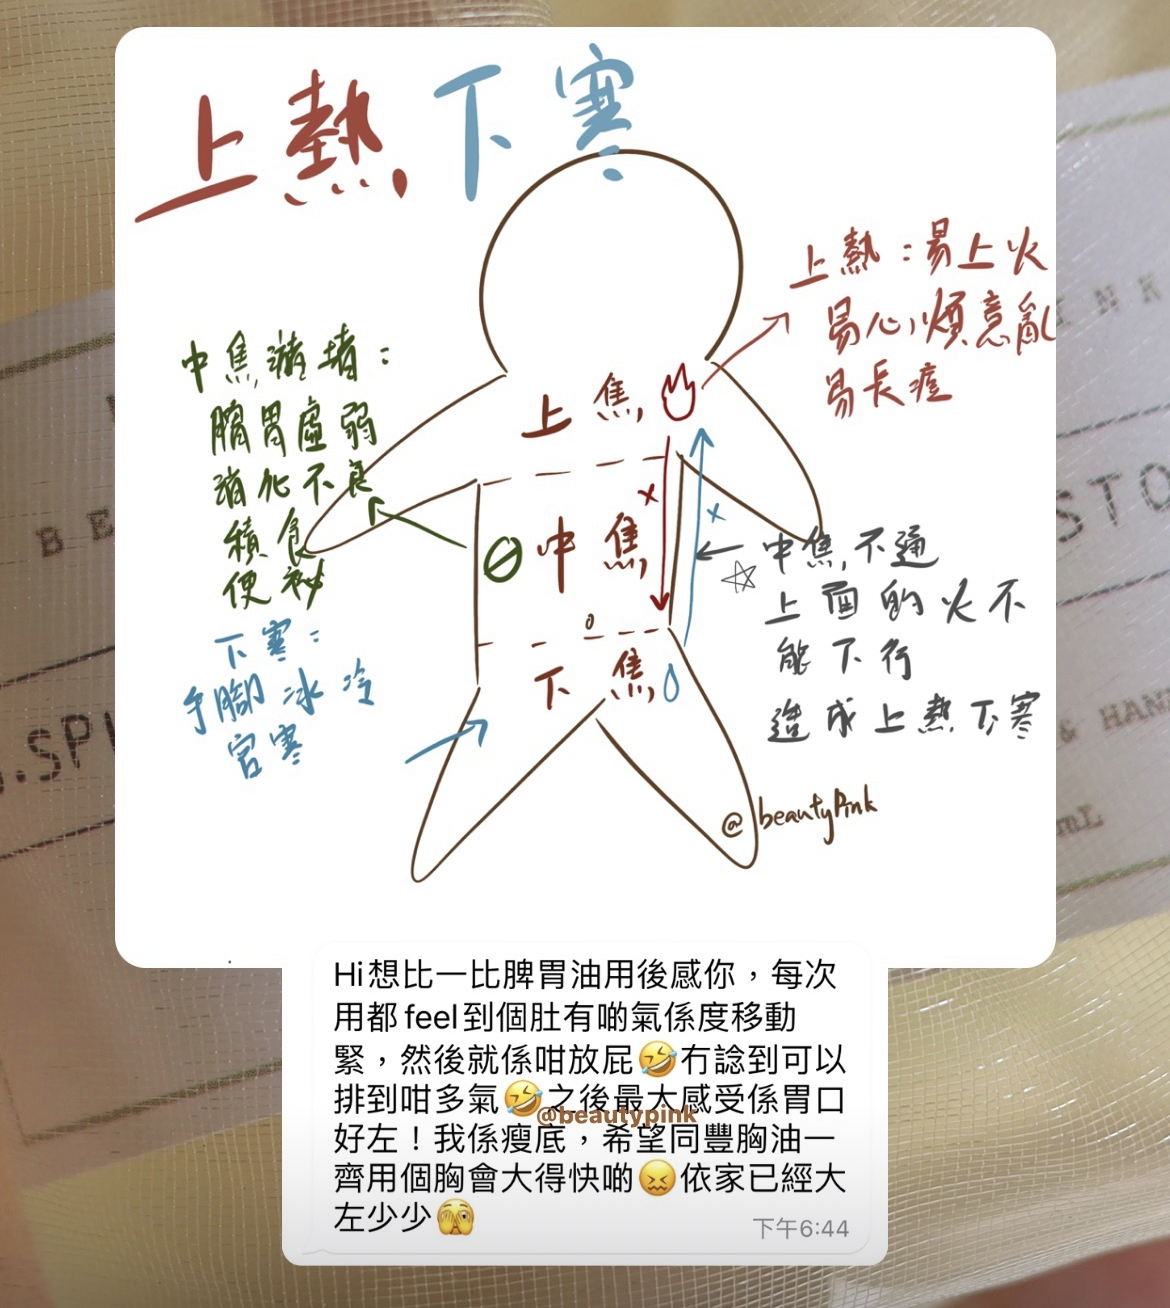 上熱下寒
上熱：易上火
易心煩意亂
易長痘
中焦淤堵：
脾胃虛弱
消化不良
積食
便祕
下寒：
手腳冰冷
宮寒
上焦
中焦
下焦
中焦不通
上面的火不
能下行
造成上熱下寒
@beautyPink
Hi想比一比脾胃油用後感你，每次
用都feel到個肚有啲氣係度移動
緊，然後就係咁放屁🤣冇諗到可以
排到咁多氣🤣之後最大感受係胃口
@beautypink
好左！我係瘦底，希望同豐胸油一
齊用個胸會大得快啲😖依家已經大
左少少🫣
下午6:44
INK
BE
STO
.SPI
& HAN
mL